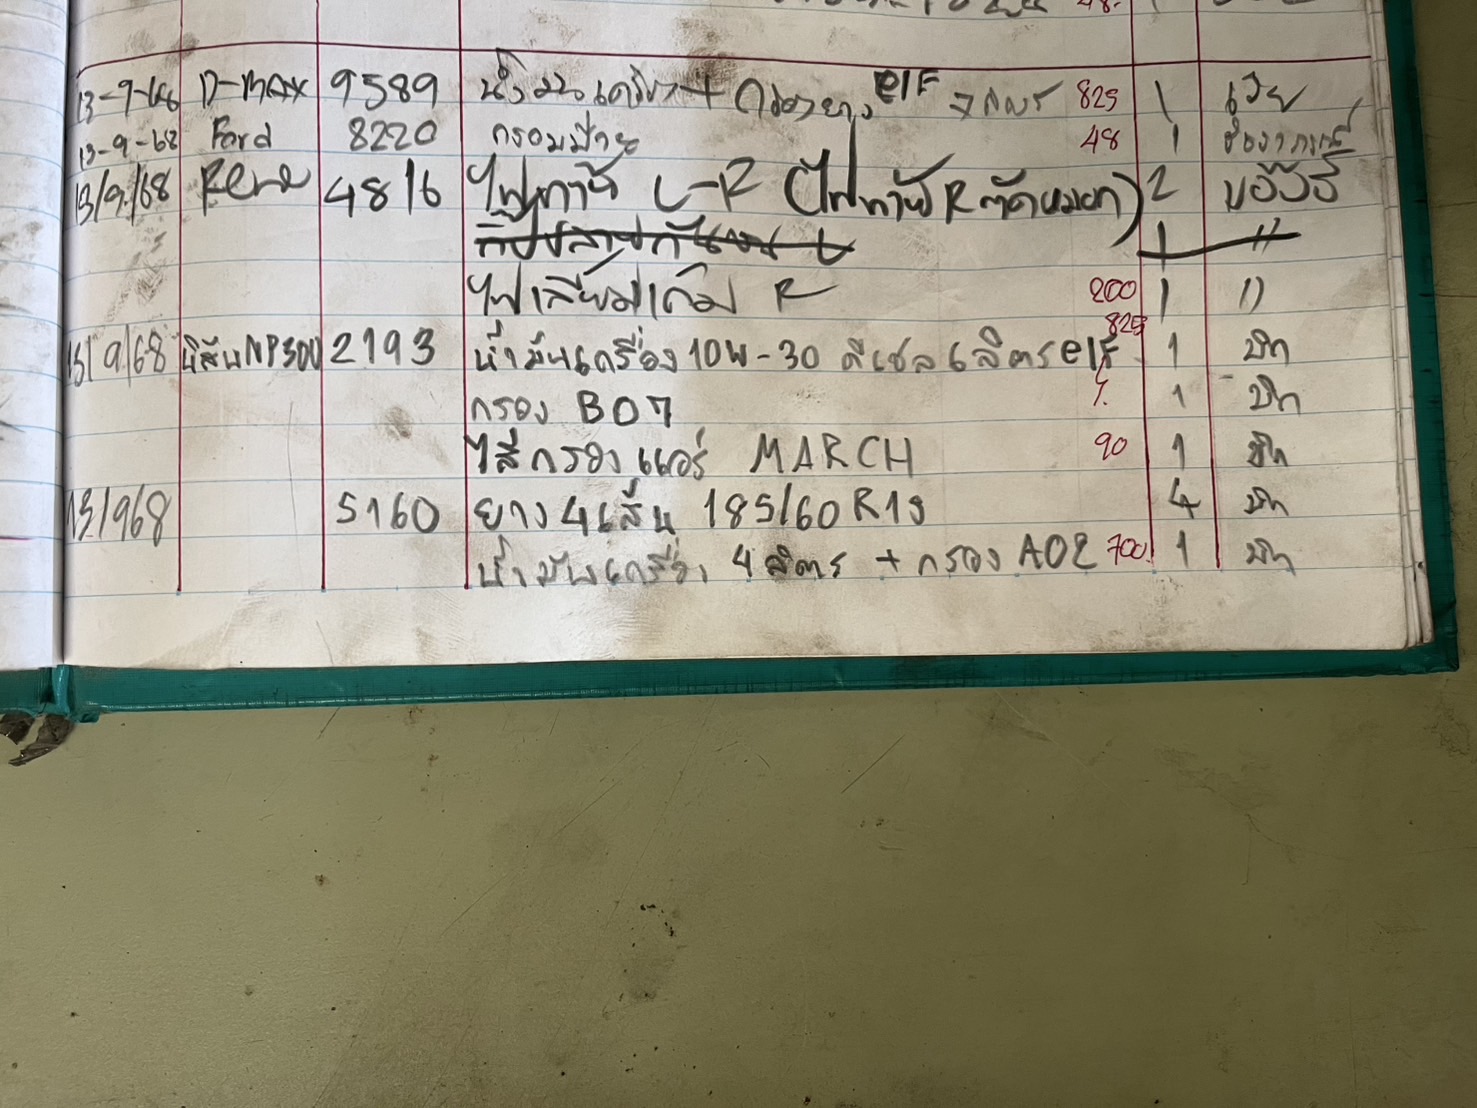 13-9-68 D-max 9589 น้ำมันเครื่อง + กรอง elf 7 ลิตร 825 1
13-9-68 Ford 8220 กรอบป้าย 48 1
13/9/68 4816 ไฟท้าย L-R (ไฟท้าย R ตัดหมอก) 2
1 "
ไฟเลี้ยว R 200 1 "
13/9/68 นิสสัน NP300 2193 น้ำมันเครื่อง 10W-30 ดีเซล 6 ลิตร elf 825 1 บิ๊ก
กรอง B07 1 บิ๊ก
ไส้กรองแอร์ MARCH 90 1 บิ๊ก
13/968 5160 ยาง 4 เส้น 185/60 R15 4 บิ๊ก
น้ำมันเครื่อง 4 ลิตร + กรอง A02 700 1 บิ๊ก